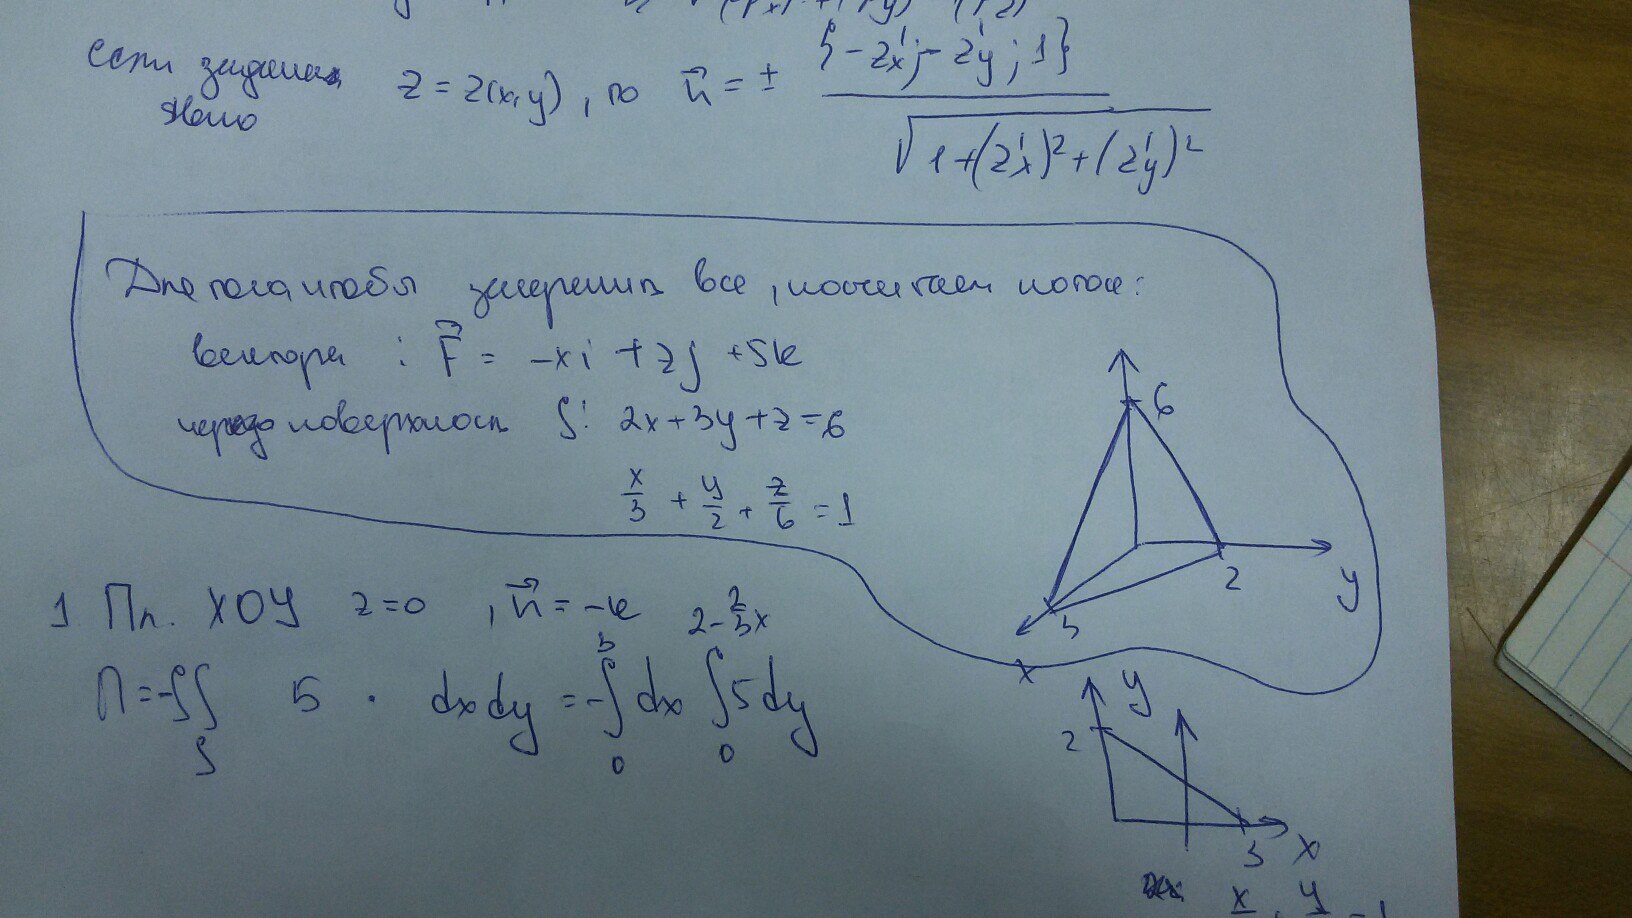 если задана z = z(x,y), то n⃗ = ± {-z'x; -z'y; 1} / √(1+(z'x)²+(z'y)²)
явно
Для того чтобы закрепить все, посчитаем поток:
вектора : F⃗ = -xi + zj + 5k
через поверхность S: 2x+3y+z=6
x/3 + y/2 + z/6 = 1
6
2
y
3
x
1 Пл. XOY z=0 , n⃗ = -k
П = -∫∫_S 5 · dxdy = -∫₀³ dx ∫₀^(2-2/3x) 5dy
y
2
3
x
x y = 1